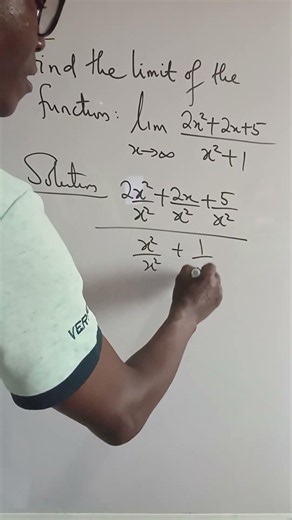 Find the limit of the
function: lim 2x²+2x+5
x→∞ x²+1
Solution
2x² + 2x + 5
x² x² x²
x² + 1
x²
VER